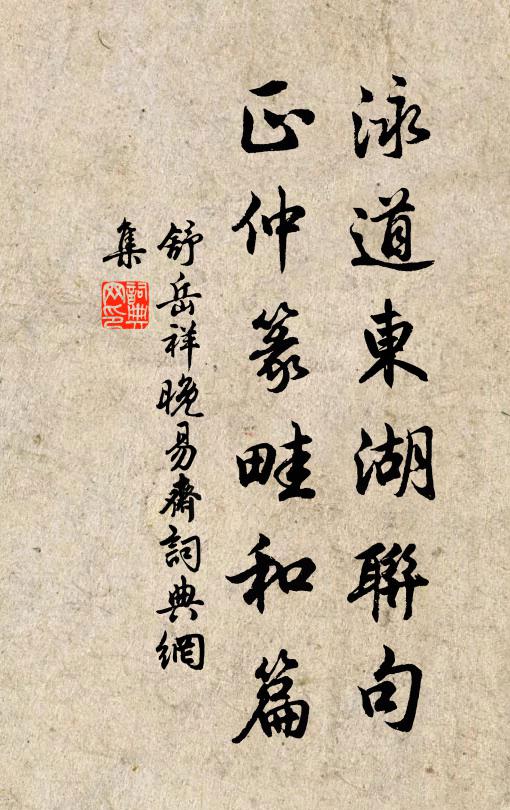 泳道東湖聯句
正仲篆畦和篇
舒岳祥晚易齋詞典網
集
詞典網印